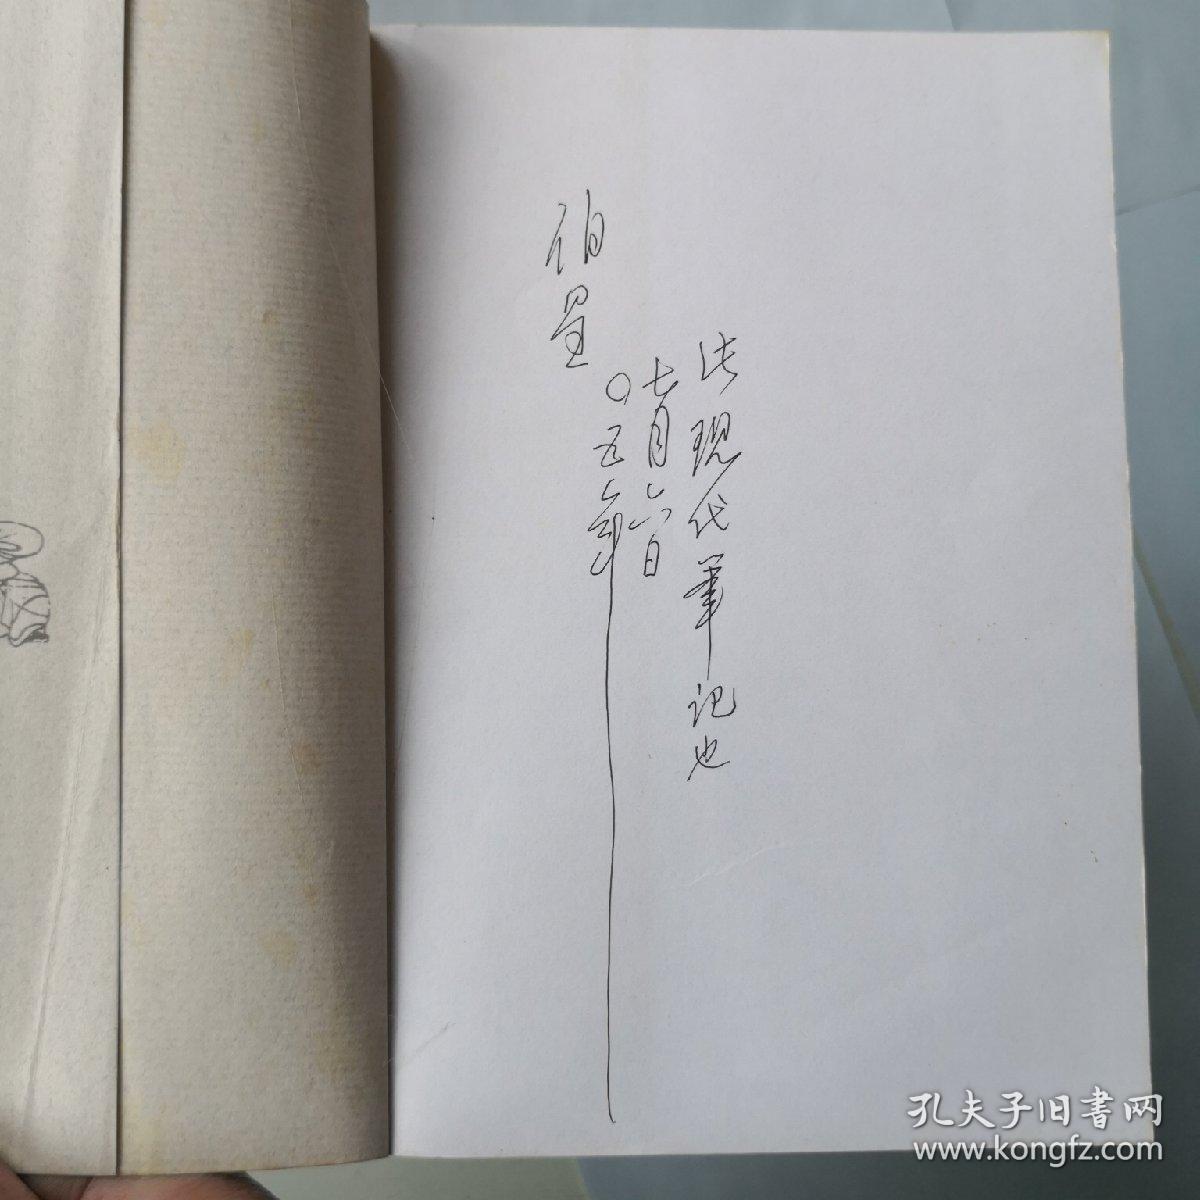 现代笔记也
七月六日
〇五年
孔夫子旧书网
www.kongfz.com